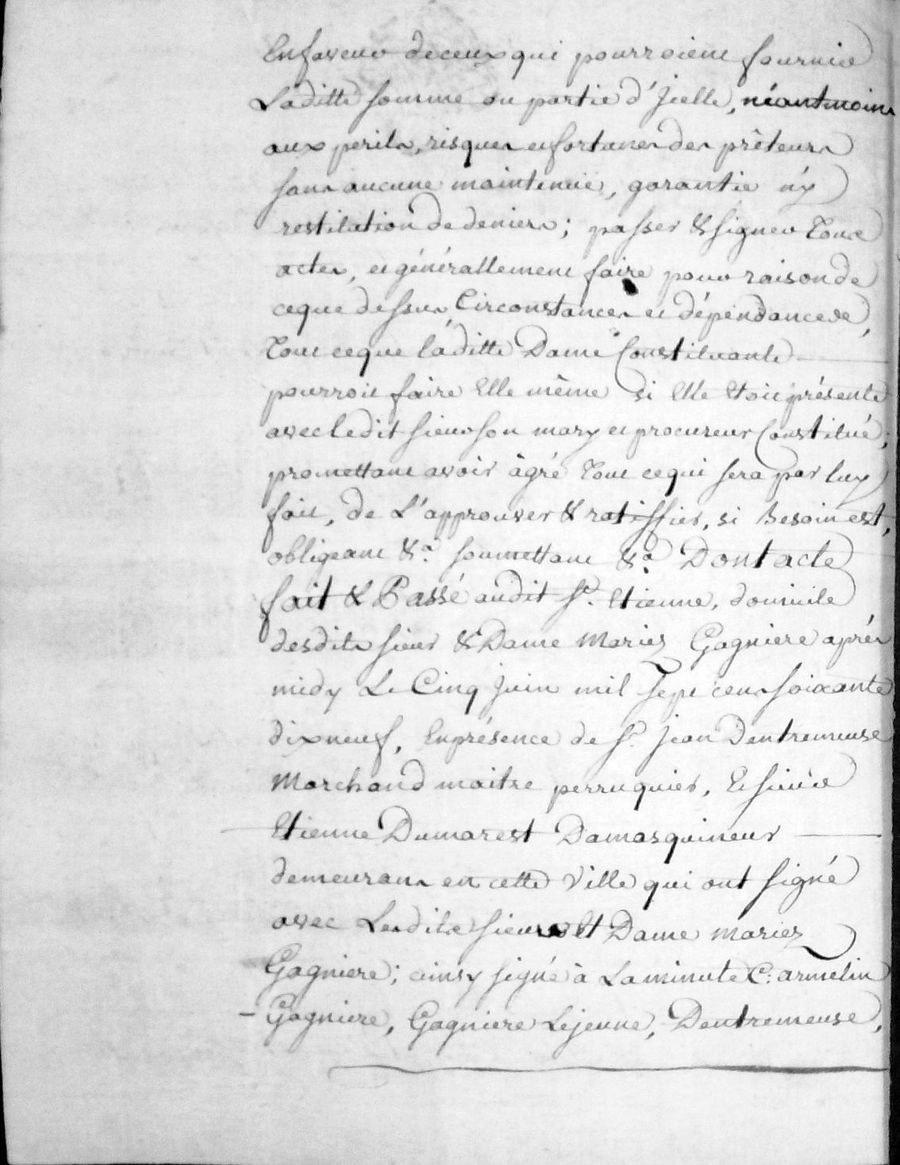 En faveur de ceux qui pourroient fournir
Laditte somme ou partie d'Jcelle, néantmoins
aux perils, risques et fortunes des prêteurs
sans aucune maintenüe, garantie n'y
restitution de deniers ; passer & signer tous
actes, et générallement faire pour raison de
ce que dessus Circonstances et dépendances,
Tout ce que laditte Dame Constituante
pourroit faire Elle même si Elle Etoit présente
avec ledit sieur son mary et procureur Constitué ;
promettant avoir àgré Tout ce qui sera par luy
fait, de L'approuver & ratiffier, si Besoin est,
obligeant &a. soumettant &a. Dont acte
fait & Passé audit St. Etienne, domicile
desdits sieur & Dame Mariez Gagniere après
midy Le Cinq Juin mil sept cens soixante
dix neuf, En présence de Sr. Jean Dentremeuse
Marchand maitre perruquier, Et sieur
Etienne Dumarest Damasquineur
demeurans en cette Ville qui ont signé
avec Lesdits sieur Et Dame Mariez
Gagniere ; ainsy signé à La minute C: armelin
Gagniere, Gagniere Lejeune, Dentremeuse,